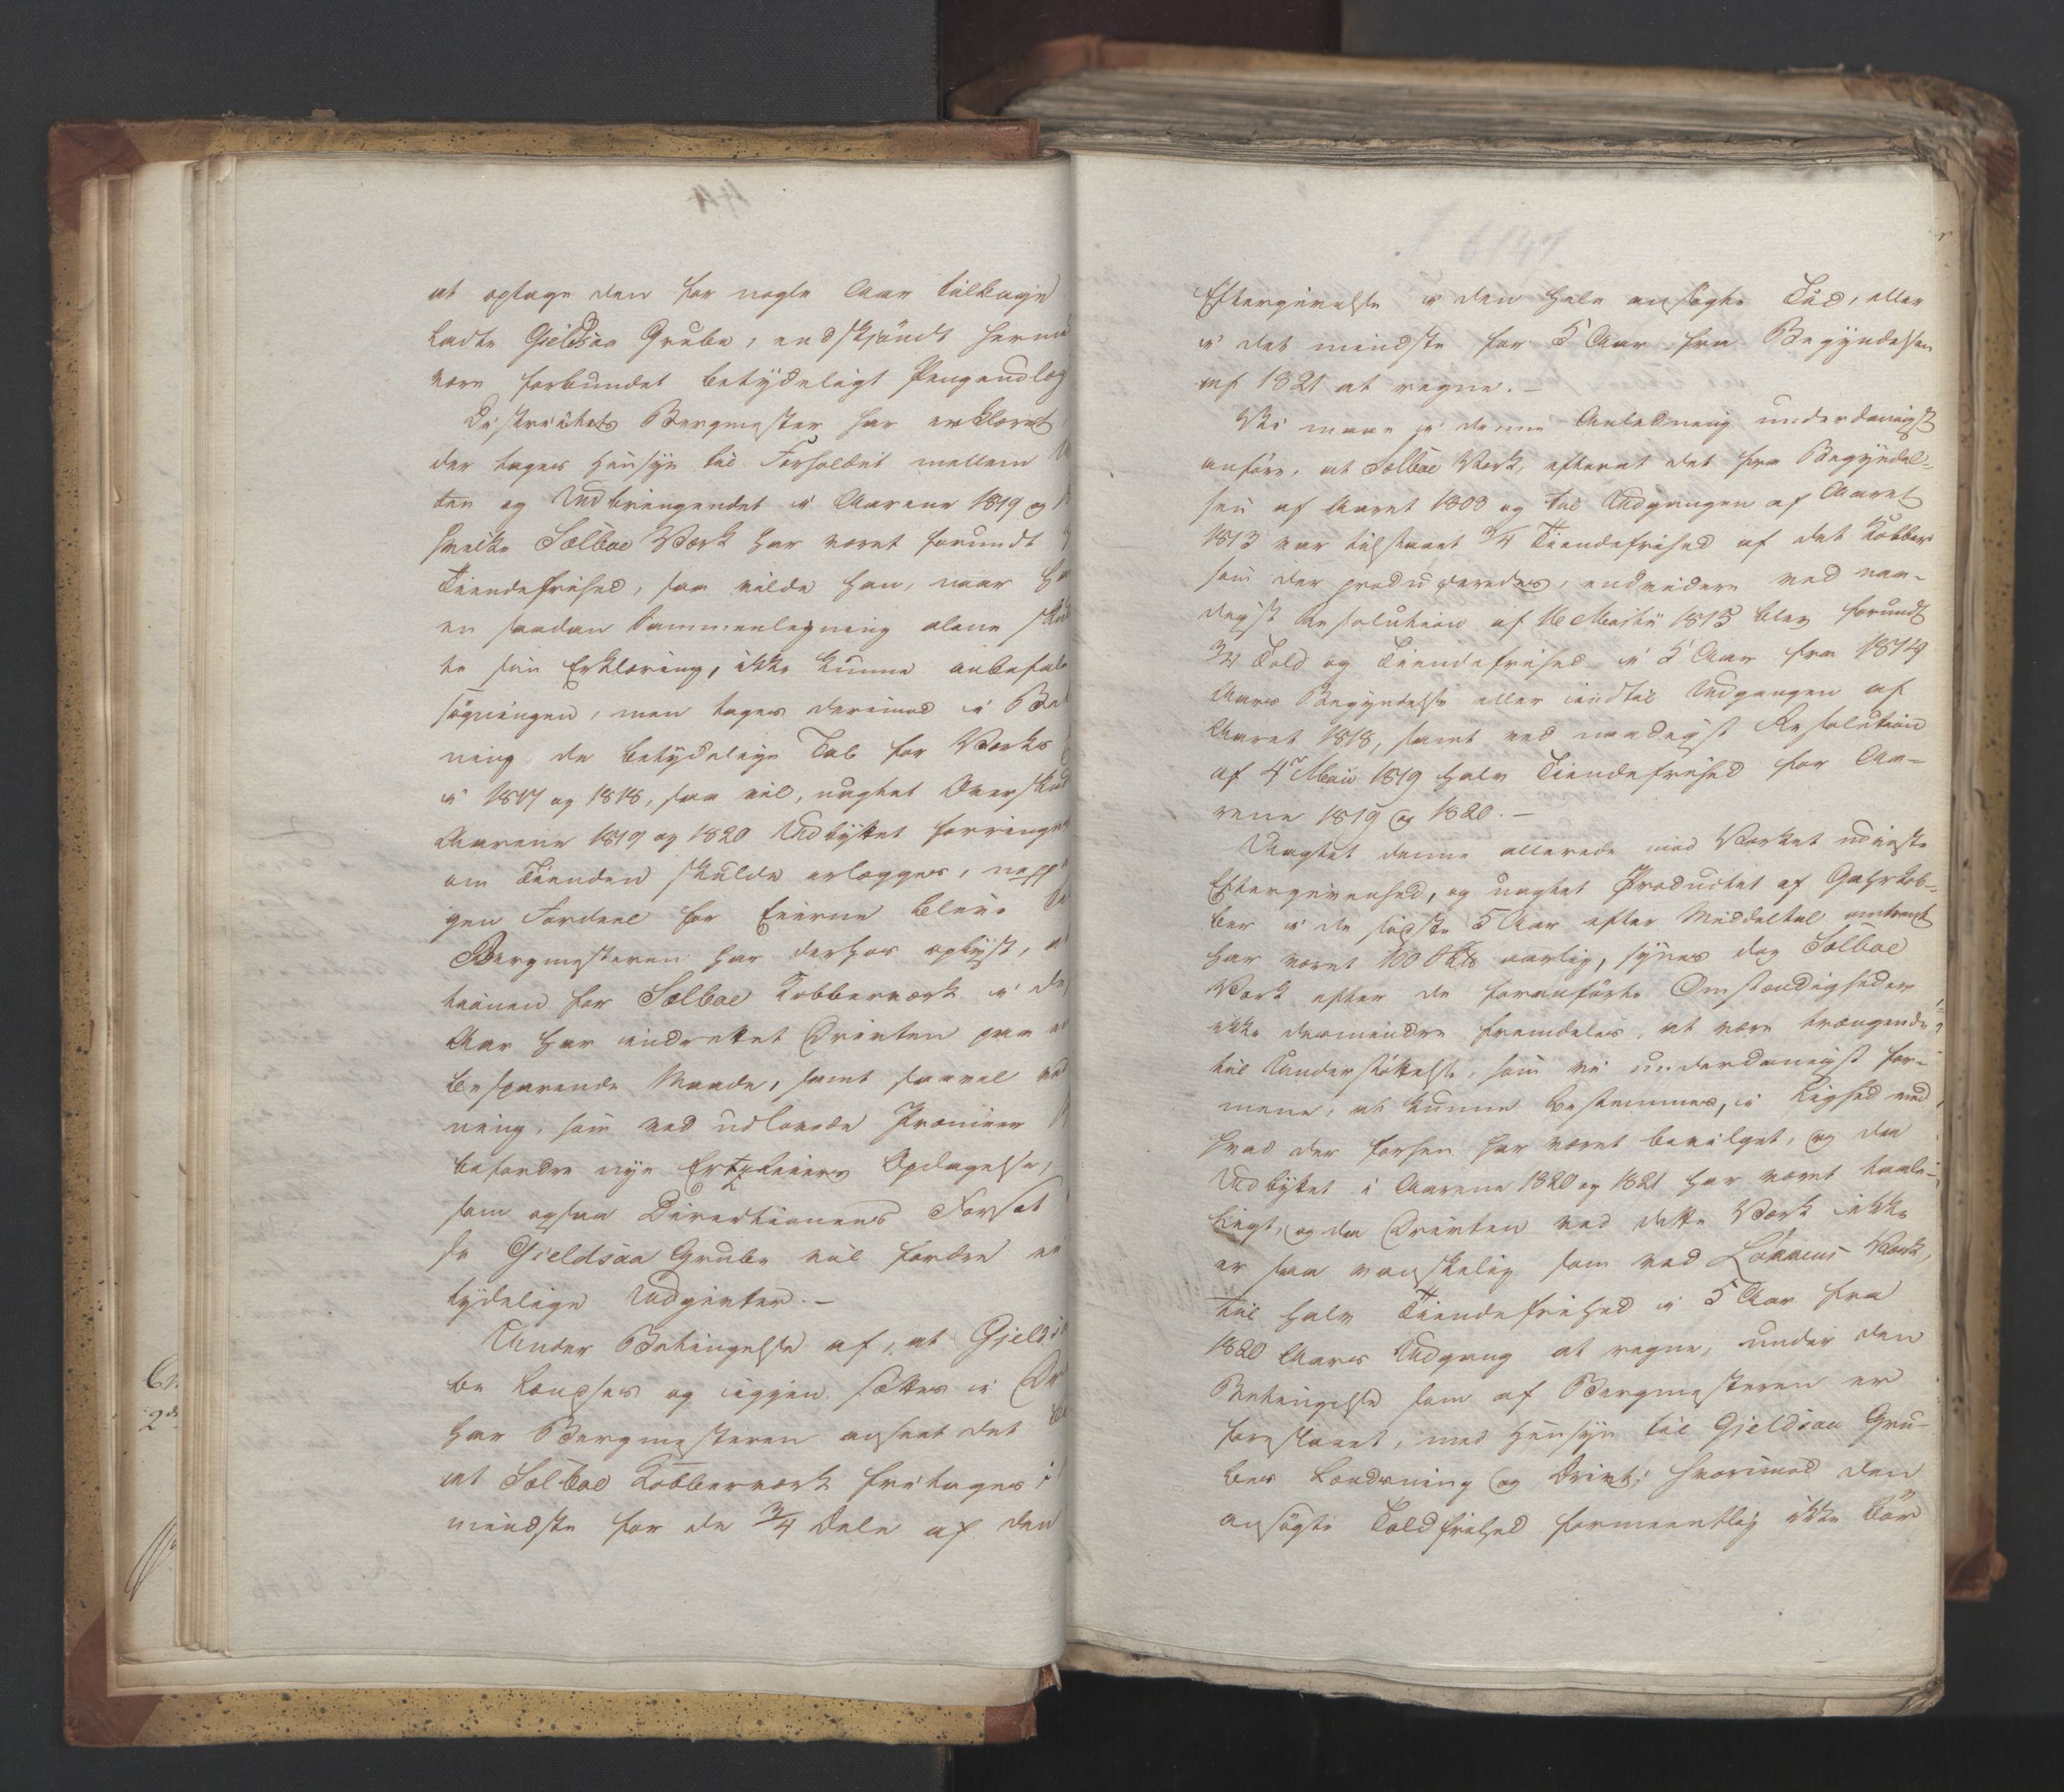 at optage den for nogle Aar tilbage
ladte Gieldsaa Grube, endskjöndt herme
være forbundet betydeligt Pengeudlæg
Districtets Bergmester har erklæret,
der tages Hensyn til Forholdet mellem
ten og Udbringendet i Aarene 1819 og
hvilke Sælboe Værk har været forundt
Tiendefrihed, saa vilde han, naar
en saadan Sammenlegning alene
te sin Erklæring, ikke kunne anbefale
søgningen, men tages derimod i
ning de betydelige Tab for Værket
i 1817 og 1818, saa vil, uagtet Overskud
Aarene 1819 og 1820 Udbyttet forringes
om Tienden skulde erlægges, nepp
gen Fordeel for Eierne blive
Bergmesteren har derhos oplyst, at
tionen for Sælboe Kobberværk i de
Aar har indrettet Driften paa en
besparende Maade, samt saavel ved
ning, som ved udlovede Præmier
befordre nye Ertzleiers Opdagelse,
som ogsaa Directionens Forsæt
se Gieldsaa Grube vil fordre
tydelige Udgivter. -
Under Betingelse af, at Gjelds
be lændses og igjen sættes i
har Bergmesteren anseet det
at Sælboe Kobberværk fritages i
mindste for de 3/4 Dele af den
6147
Eftergivelse i den hele ansøgte Tid, eller
i det mindste for 5 Aar fra Begyndelsen
af 1821 at regne. -
Vi maae i denne Anledning underdanigst
anføre, at Sælboe Værk, efterat det fra Begyndel-
sen af Aaret 1808 og til Udgangen af Aaret
1813 var tilstaaet 3/4 Tiendefrihed af det Kobber
som der produceredes, endvidere ved naa-
digst Resolution af 16 Martii 1815 blev forundt
3/4 Told og Tiendefrihed i 5 Aar fra 1814
Aars Begyndelse eller indtil Udgangen af
Aaret 1818, samt ved naadigst Resolution
af 4 Maii 1819 halv Tiendefrihed for Aa-
rene 1819 og 1820. -
Uagtet denne allerede mod Værket udviste
Eftergivenhed, og uagtet Productet af Gahrkob-
ber i de sidste 5 Aar efter Middeltal omtrent
har været 100 aarlig, synes dog Sælboe
Værk efter de foranførte Omstændigheder
ikke desmindre fremdeles at være trængende
til Understøttelse, som vi underdanigst for-
mene, at kunne bestemmes, i Lighed med
hvad der forhen har været bevilget, og da
Udbyttet i Aarene 1820 og 1821 har været taale-
ligt, og da Driften ved dette Værk ikke
er saa vanskelig som ved Værk,
til halv Tiendefrihed i 5 Aar fra
1820 Aars Udgang at regne, under den
Betingelse som af Bergmesteren er
foreslaaet, med Hensyn til Gjeldsaa Gru-
bes Lændsning og Drivt; hvorimod den
ansøgte Toldfrihed formeentlig ikke bør